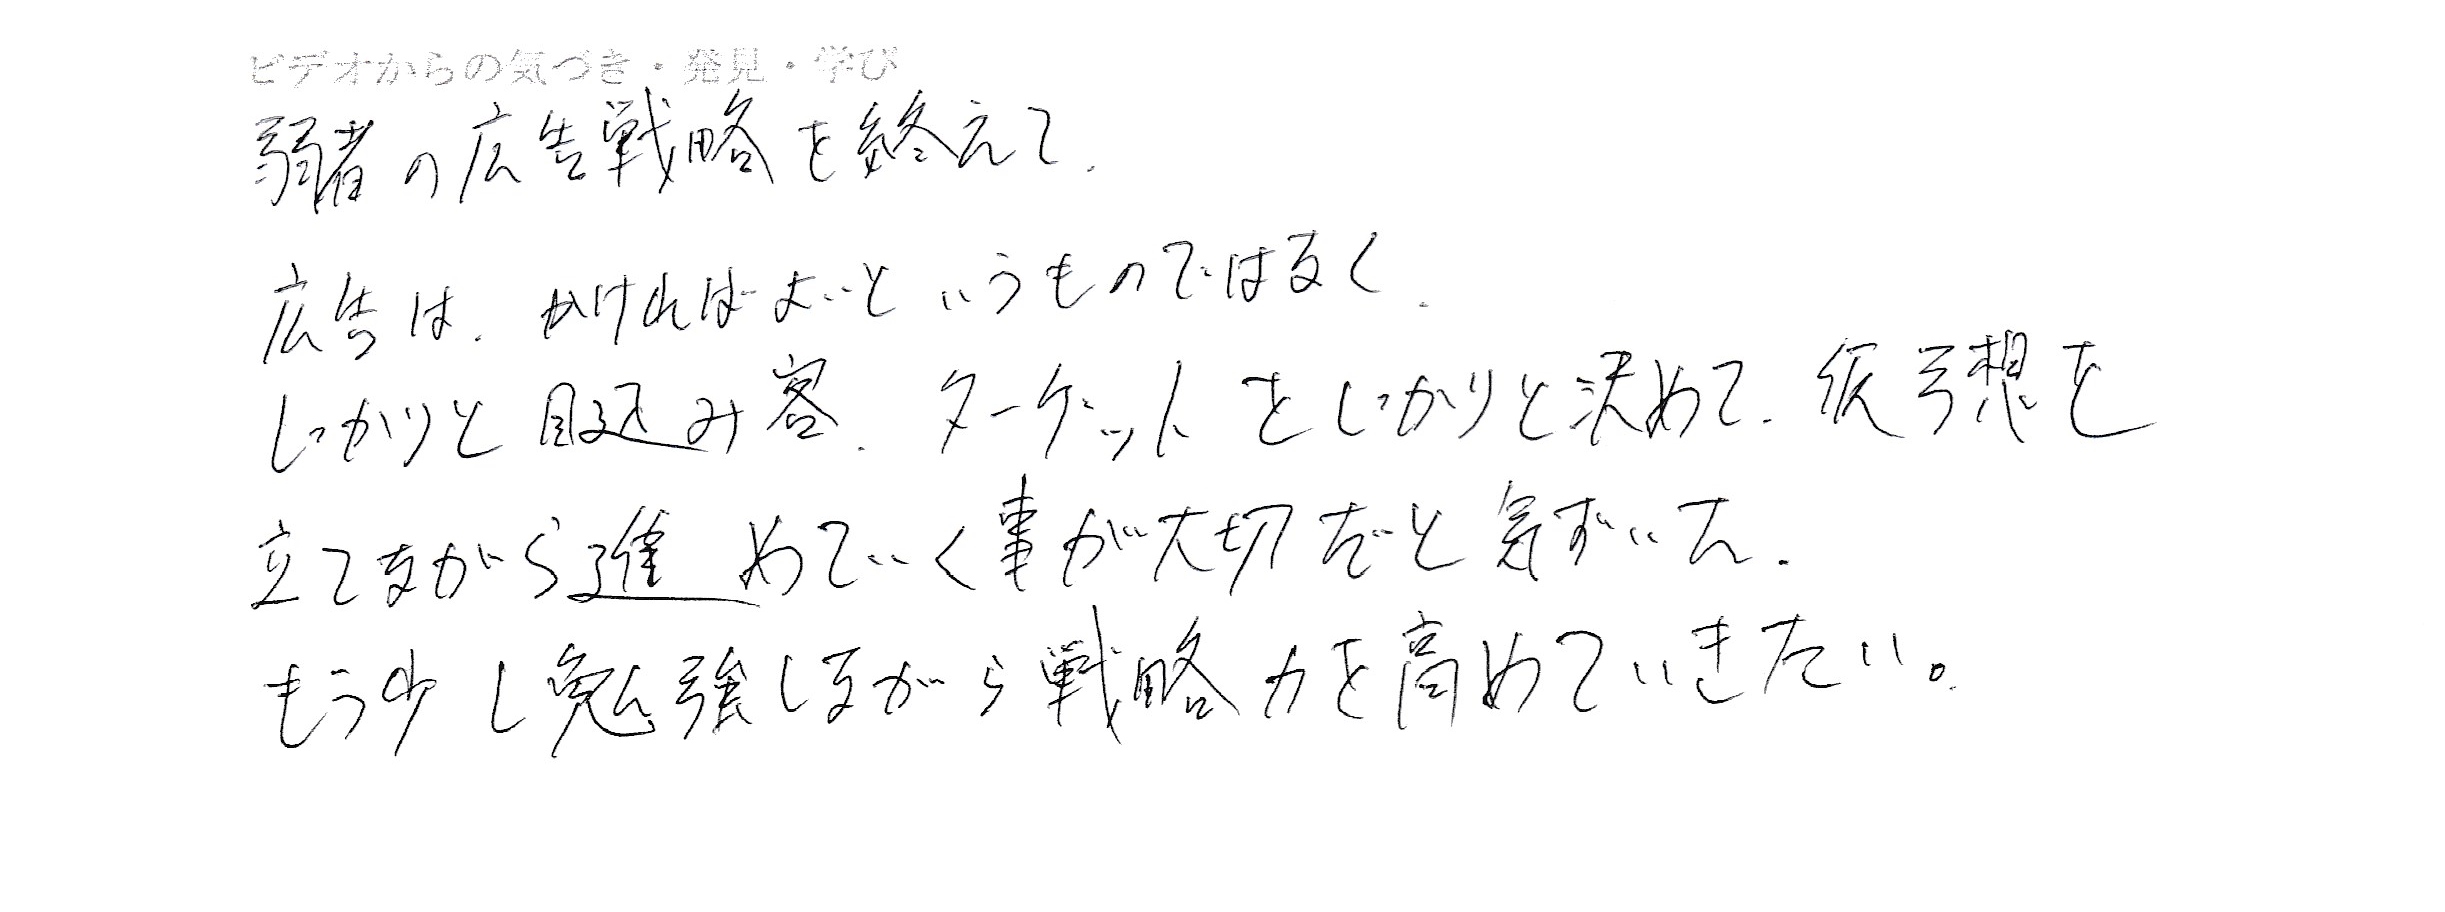 ビデオからの気づき・発見・学び
弱者の広告戦略を終えて、
広告は、かければよいというものではなく、
しっかりと見込み客、ターゲットをしっかりと決めて、仮予想を
立てながら進めていく事が大切だと気ずいた。
もう少し勉強しながら戦略力を高めていきたい。